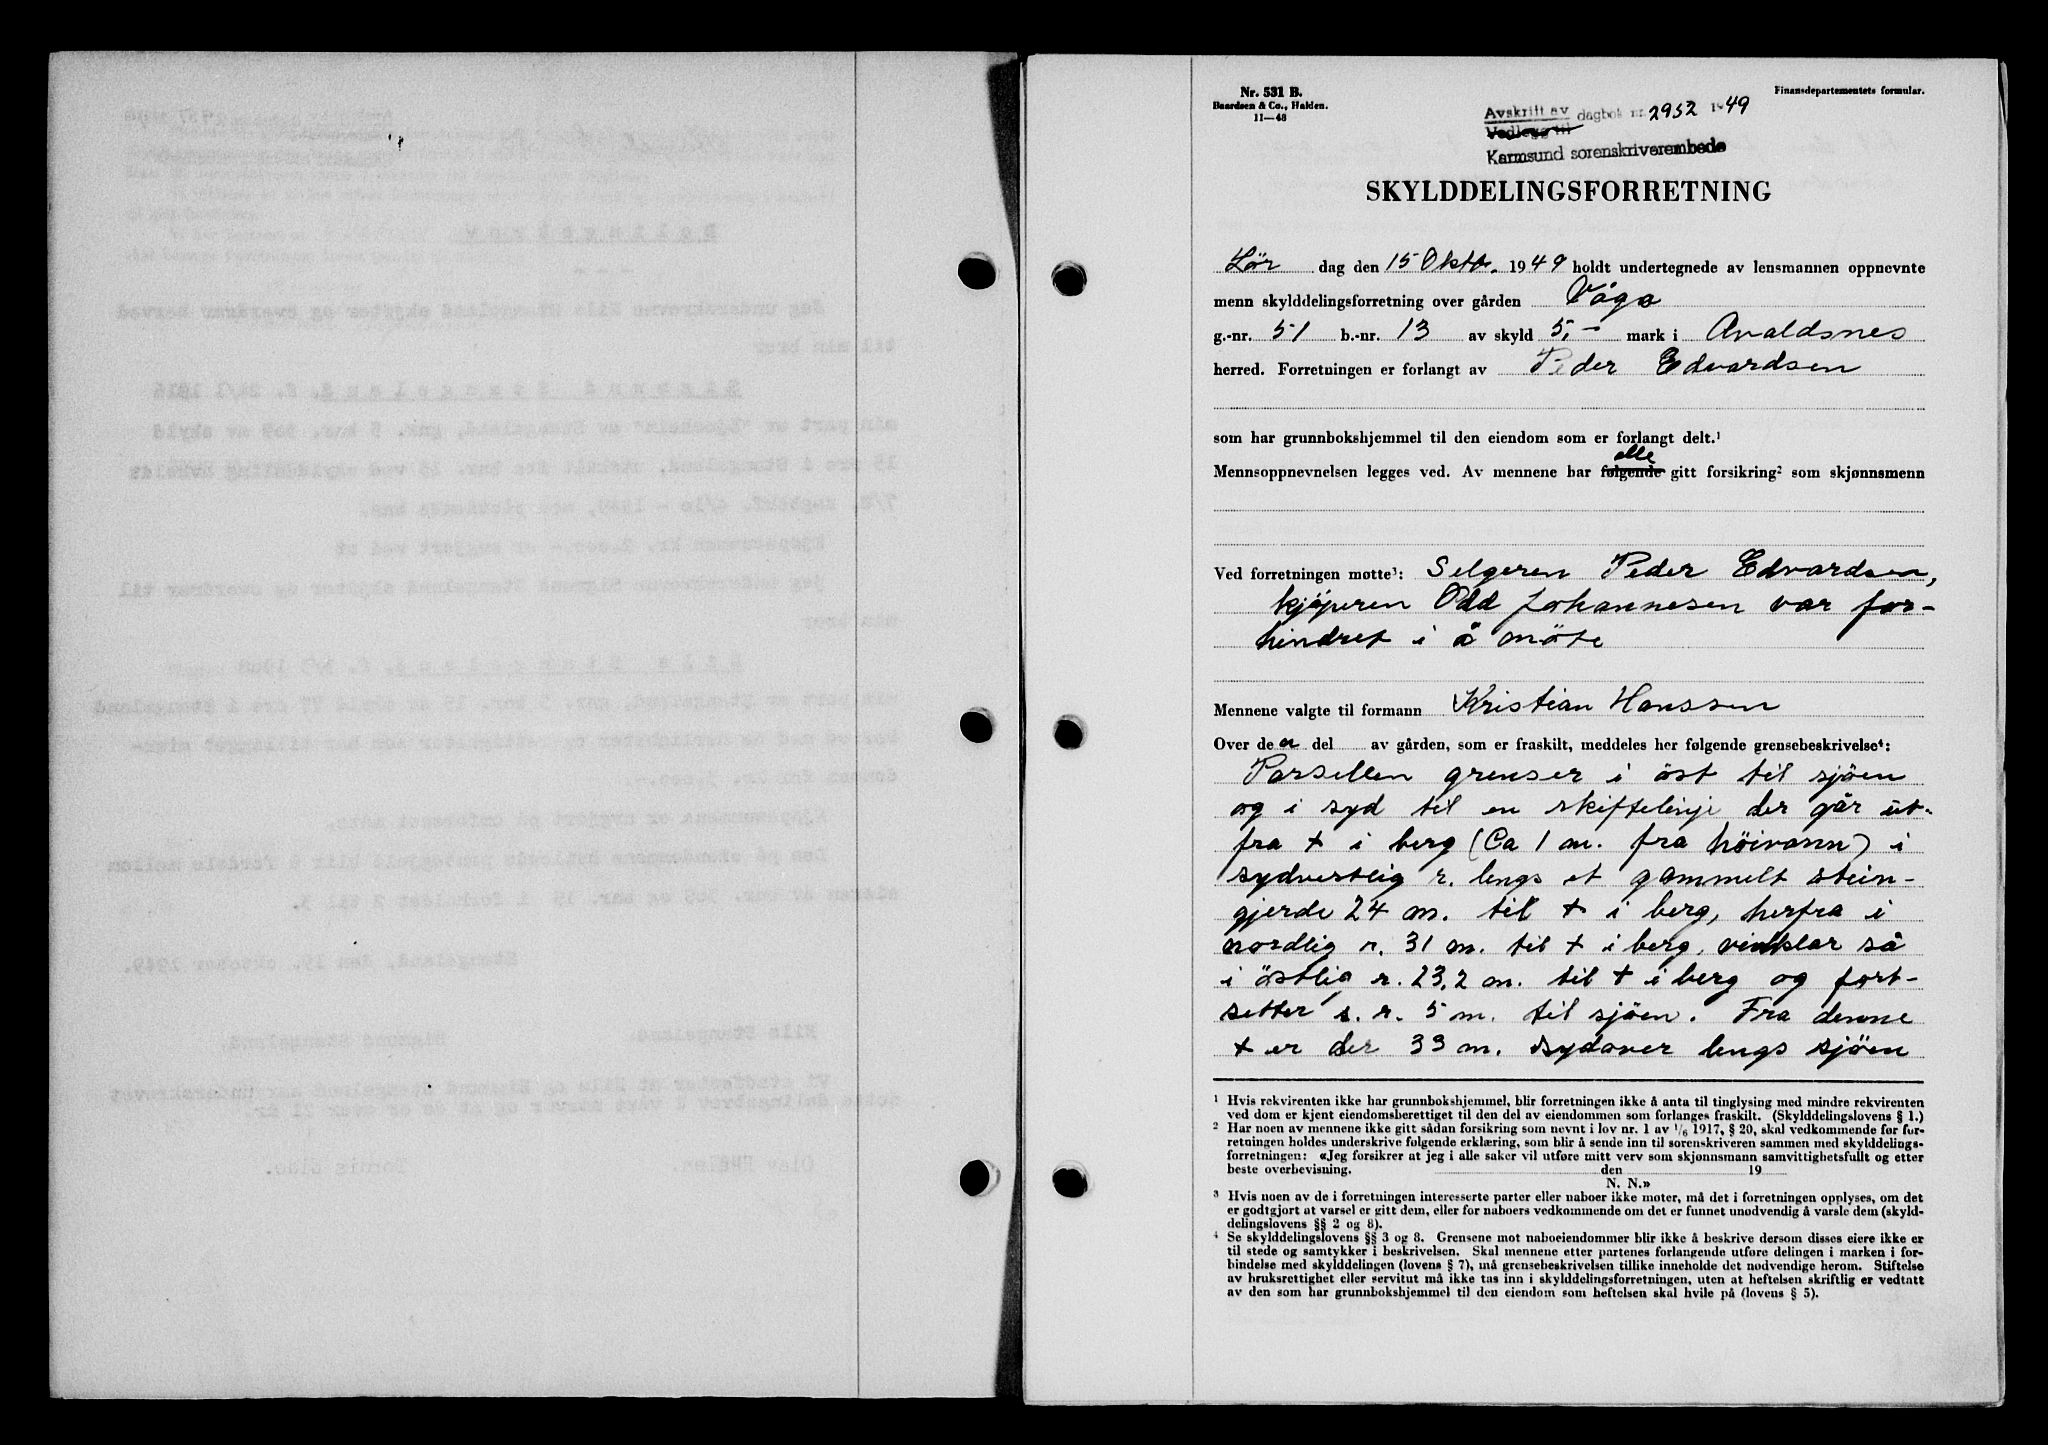 Nr. 531 B.
Baardsen & Co., Halden.
11—48
Finansdepartementets formular.
Avskrift av dagbok nr. 2952 1949
Vedlegg til
Karmsund sorenskriverembede
SKYLDDELINGSFORRETNING
Lör dag den 15 Oktbr. 1949 holdt undertegnede av lensmannen oppnevnte
menn skylddelingsforretning over gården Våga
g.-nr. 51 b.-nr. 13 av skyld 5,- mark i Avaldsnes
herred. Forretningen er forlangt av Peder Edvardsen
som har grunnbokshjemmel til den eiendom som er forlangt delt.¹
alle
Mennsoppnevnelsen legges ved. Av mennene har følgende gitt forsikring² som skjønnsmenn
Ved forretningen møtte³: Selgeren Peder Edvardsen,
kjöperen Odd Johannesen var for-
hindret i å möte
Mennene valgte til formann Kristian Hanssen
Over den del av gården, som er fraskilt, meddeles her følgende grensebeskrivelse⁴:
Parsellen grenser i öst til sjöen
og i syd til en skiftelinje der går ut-
fra + i berg (Ca 1 m. fra höivann) i
sydvestlig r. lengs et gammelt stein-
gjerde 24 m. til + i berg, herfra i
nordlig r. 31 m. til + i berg, vinklar så
i östlig r. 23,2 m. til + i berg og fort-
setter s. r. 5 m. til sjöen. Fra denne
+ er der 33 m. sydover lengs sjöen
¹ Hvis rekvirenten ikke har grunnbokshjemmel, blir forretningen ikke å anta til tinglysing med mindre rekvirenten
ved dom er kjent eiendomsberettiget til den del av eiendommen som forlanges fraskilt. (Skylddelingslovens § 1.)
² Har noen av mennene ikke gitt sådan forsikring som nevnt i lov nr. 1 av 1/6 1917, § 20, skal vedkommende før for-
retningen holdes underskrive følgende erklæring, som blir å sende inn til sorenskriveren sammen med skylddelings-
forretningen: «Jeg forsikrer at jeg i alle saker vil utføre mitt verv som skjønnsmann samvittighetsfullt og etter
beste overbevisning. den 19
N. N.»
³ Hvis noen av de i forretningen interesserte parter eller naboer ikke møter, må det i forretningen opplyses, om det
er godtgjort at varsel er gitt dem, eller for naboers vedkommende om det er funnet unødvendig å varsle dem (skyld-
delingslovens §§ 2 og 8).
⁴ Se skylddelingslovens §§ 3 og 8. Grensene mot naboeiendommer blir ikke å beskrive dersom disses eiere ikke er
til stede og samtykker i beskrivelsen. Skal mennene etter partenes forlangende utføre delingen i marken i for-
bindelse med skylddelingen (lovens § 7), må grensebeskrivelsen tillike inneholde det nødvendige herom. Stiftelse
av bruksrettighet eller servitut må ikke tas inn i skylddelingsforretningen, uten at heftelsen skriftlig er vedtatt
av den som har grunnbokshjemmel til den eiendom som heftelsen skal hvile på (lovens § 5).